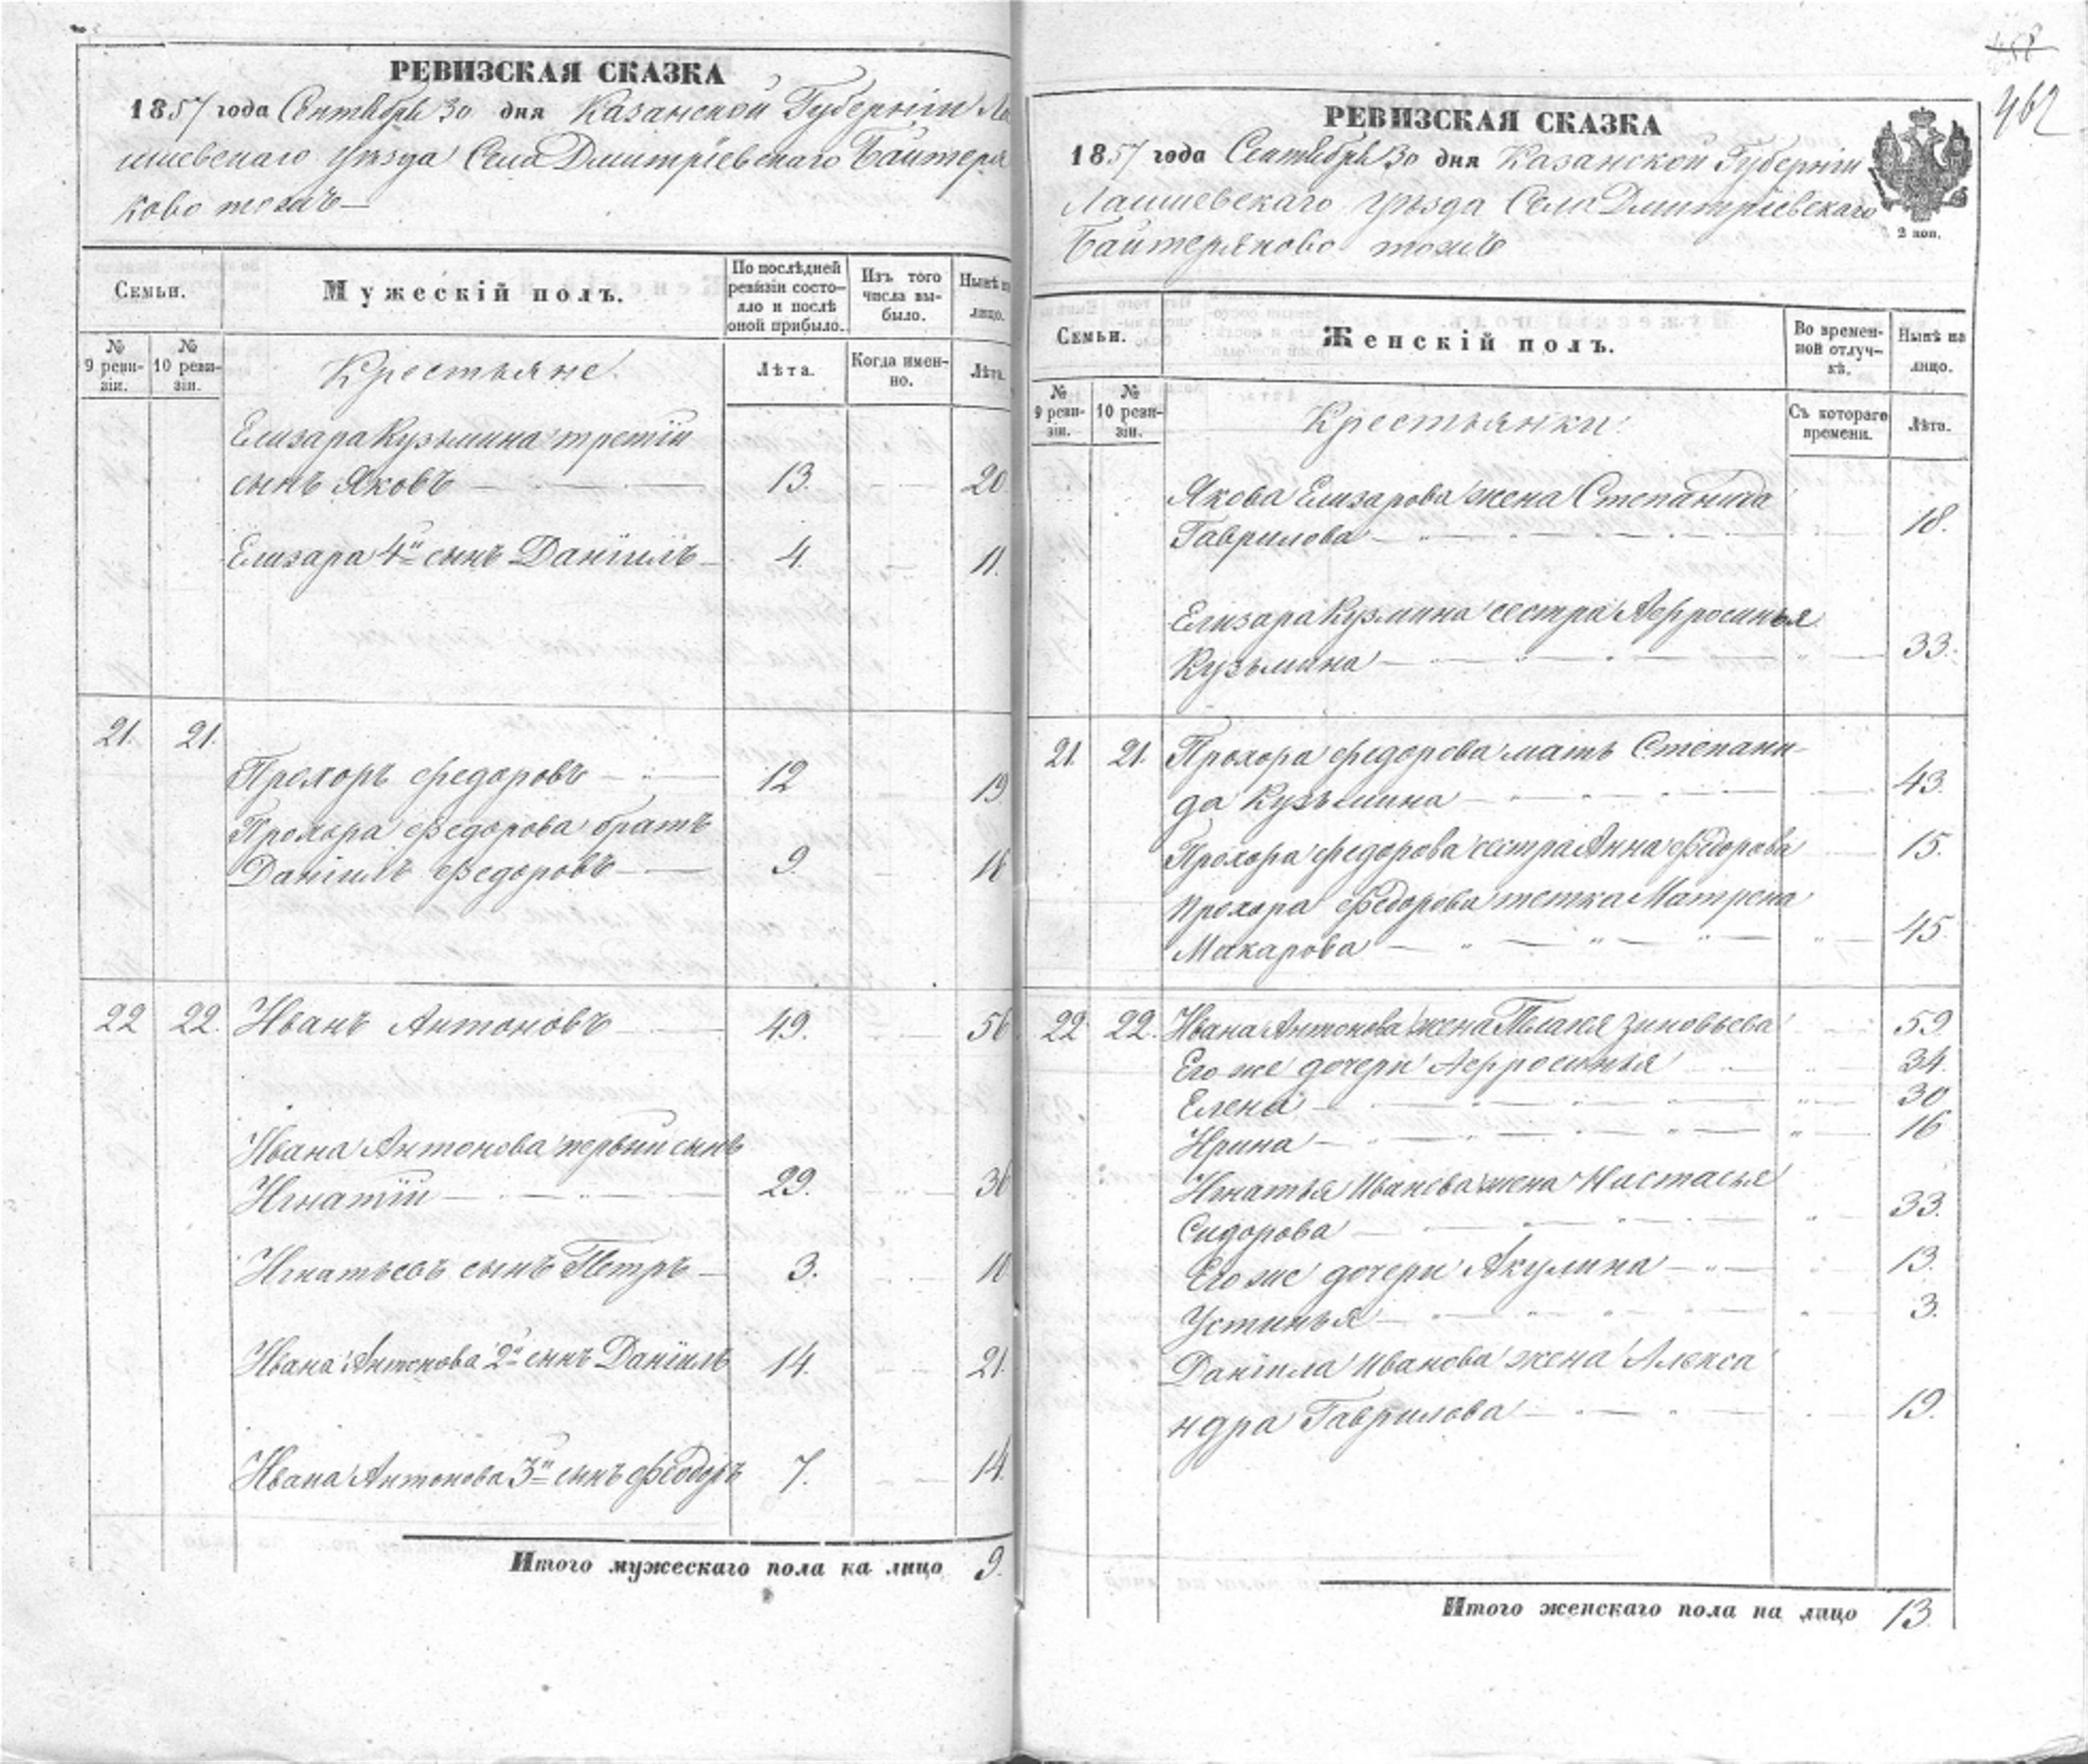 РЕВИЗСКАЯ СКАЗКА
1857 года Сентября 30 дня Казанской Губернiи Ла
ишевскаго уѣзда Села Дмитрiевскаго Байтеря
ково тожъ
Семьи.
Мужескiй полъ.
По послѣдней ревизiи состояло и послѣ оной прибыло.
Изъ того числа выбыло.
Нынѣ на лицо.
№ 9 ревизiи.
№ 10 ревизiи.
Крестьяне.
Лѣта.
Когда именно.
Лѣта.
Елизара Кузьмина третiй
сынъ Яковъ — 13. 20
Елизара 4й сынъ Данiилъ — 4. 11.
21. 21.
Прохоръ Федоровъ — 12 19
Прохора Федорова братъ
Данiилъ Федоровъ — 9 16
22 22. Иванъ Антоновъ 49. 56
Ивана Антонова первый сынъ
Игнатiй — 29. 36
Игнатьевъ сынъ Петръ — 3. 10
Ивана Антонова 2й сынъ Данiилъ 14. 21.
Ивана Антонова 3й сынъ Феодоръ 7. 14.
Итого мужескаго пола на лицо 9.
462
РЕВИЗСКАЯ СКАЗКА
1857 года Сентября 30 дня Казанской Губернiи
Лаишевскаго уѣзда Села Дмитрiевскаго
Байтеряково тожъ
2 коп.
Семьи.
Женскiй полъ.
Во временной отлучкѣ.
Нынѣ на лицо.
№ 9 ревизiи.
№ 10 ревизiи.
Крестьянки.
Съ котораго времени.
Лѣта.
Якова Елизарова жена Степанида
Гаврилова — 18.
Елизара Кузмина сестра Афросинья
Кузьмина — 33.
21. 21. Прохора Федорова мать Степани-
да Кузьмина — 43.
Прохора Федорова сестра Анна Федорова — 15.
Прохора Федорова тетка Матрена
Макарова — 45
22 22. Ивана Антонова жена Пелагея Зиновьева 59.
Его же дочери Афросинья 34.
Елена — 30
Ирина — 16
Игнатья Иванова жена Настасья
Сидорова — 33.
Его же дочери Акулина — 13.
Устинья — 3.
Данiила Иванова жена Алекса
ндра Гаврилова — 19.
Итого женскаго пола на лицо 13.